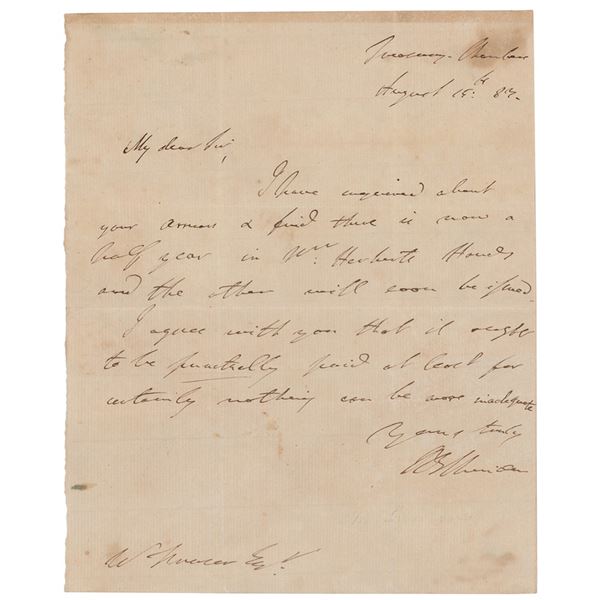 Treasury-Chambers
August 15th 83.
My dear Sir,
I have enquired about
your arrears & find there is now a
half year in Wm. Herberts Hands
and the other will soon be issued.
I agree with you that it ought
to be punctually paid at least for
certainly nothing can be more inadequate
Yours truly
RB Sheridan
Wm Spencer Esqr.